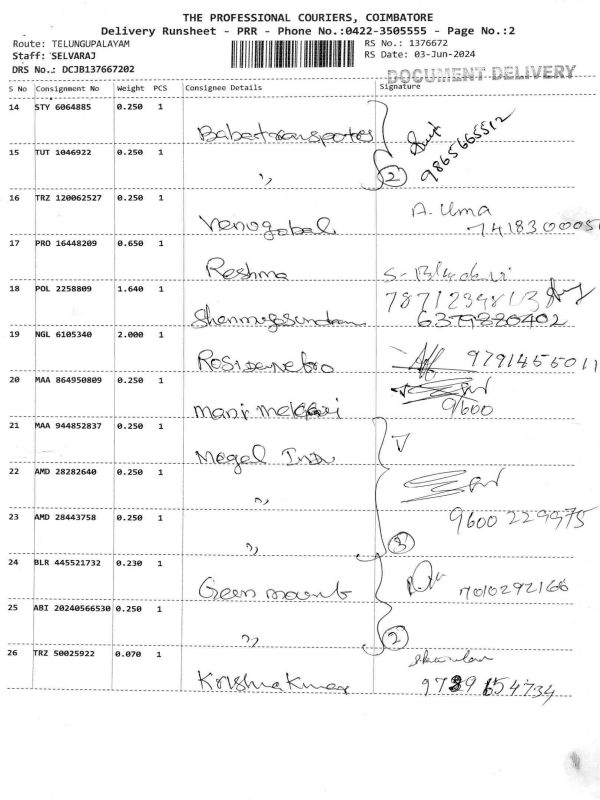 THE PROFESSIONAL COURIERS, COIMBATORE
Delivery Runsheet - PRR - Phone No.:0422-3505555 - Page No.:2
Route: TELUNGUPALAYAM RS No.: 1376672
Staff: SELVARAJ RS Date: 03-Jun-2024
DRS No.: DCJB137667202 DOCUMENT DELIVERY
S No Consignment No Weight PCS Consignee Details Signature
14 STY 6064885 0.250 1
9865665512
15 TUT 1046922 0.250 1 " 2
16 TRZ 120062527 0.250 1
Venugobal A. Uma 7418300005
17 PRO 16448209 0.650 1
Reshma
18 POL 2258809 1.640 1
6379220402
19 NGL 6105340 2.000 1
9791455011
20 MAA 864950809 0.250 1
mani 9600
21 MAA 944852837 0.250 1
Megel
22 AMD 28282640 0.250 1
"
23 AMD 28443758 0.250 1 9600 229975
" 3
24 BLR 445521732 0.230 1
Green 7010292166
25 ABI 20240566530 0.250 1
" 2
26 TRZ 50025922 0.070 1
Krishna Kumar 9739 654734